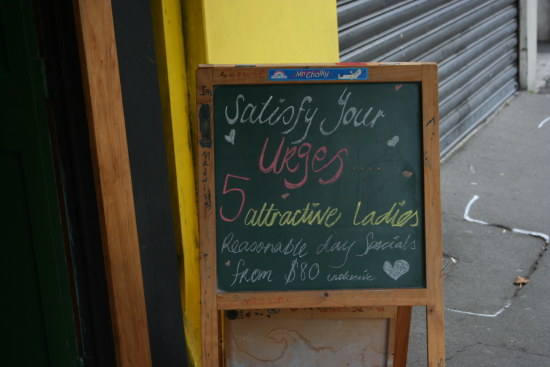 Mr Chalky
Satisfy Your
Urges....
5 attractive Ladies
Reasonable day Specials
from $80 inclusive